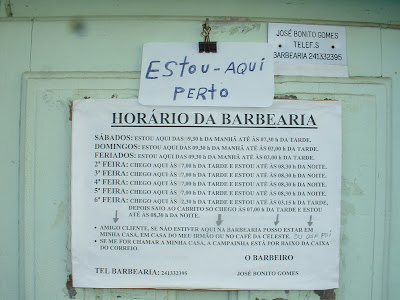 JOSÉ BONITO GOMES
TELEF.S
BARBEARIA 241332395
ESTOU-AQUI
PERTO
HORÁRIO DA BARBEARIA
SÁBADOS: ESTOU AQUI DAS 9,30 h DA MANHÃ ATÉ ÀS 07,30 h DA TARDE.
DOMINGOS: ESTOU AQUI DAS 09,30 h DA MANHÃ ATÉ ÀS 03,00 h DA TARDE.
FERIADOS: ESTOU AQUI DAS 09,30 h DA MANHÃ ATÉ ÀS 03,00 h DA TARDE.
2ª FEIRA: CHEGO AQUI ÀS 7,00 h DA TARDE E ESTOU ATÉ ÀS 08,30 h DA NOITE.
3ª FEIRA: CHEGO AQUI ÀS 7,00 h DA TARDE E ESTOU ATÉ ÀS 08,30 h DA NOITE.
4ª FEIRA: CHEGO AQUI ÀS 7,00 h DA TARDE E ESTOU ATÉ ÀS 08,30 h DA NOITE.
5ª FEIRA: CHEGO AQUI ÀS 7,00 h DA TARDE E ESTOU ATÉ ÀS 08,30 h DA NOITE.
6ª FEIRA: CHEGO AQUI ÀS 2,30 h DA TARDE E ESTOU ATÉ ÀS 03,15 h DA TARDE,
DEPOIS SAIO AO CABRITO SÓ CHEGO ÀS 07,00 h DA TARDE E ESTOU
ATÉ ÀS 08,30 h DA NOITE.
• AMIGO CLIENTE, SE NÃO ESTIVER AQUI NA BARBEARIA POSSO ESTAR EM
MINHA CASA, EM CASA DO MEU IRMÃO OU NO CAFÉ DA CELESTE. OU
• SE ME FOR CHAMAR A MINHA CASA, A CAMPAINHA ESTÁ POR BAIXO DA CAIXA
DO CORREIO.
O BARBEIRO
TEL BARBEARIA: 241332395 JOSÉ BONITO GOMES